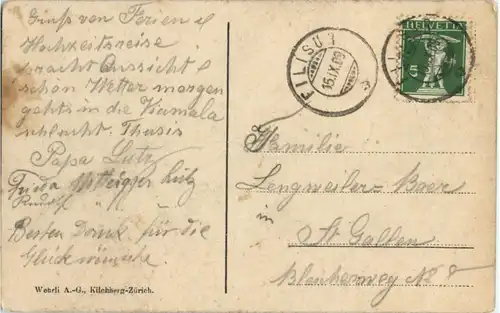 Gruß von Ferien &
Hochzeitsreise
pracht Aussicht &
schön Wetter morgen
gehts in die Viamala
schlucht. Thusis
Papa Lutz
Frieda Lutz
Rudolf " "
Besten Dank für die
Glückwünsche.
Wehrli A.-G., Kilchberg-Zürich.
FILISUR
15.IX.09
HELVETIA
5
Familie
Lengweiler-Baer
in
St Gallen
Bleicherweg No 8